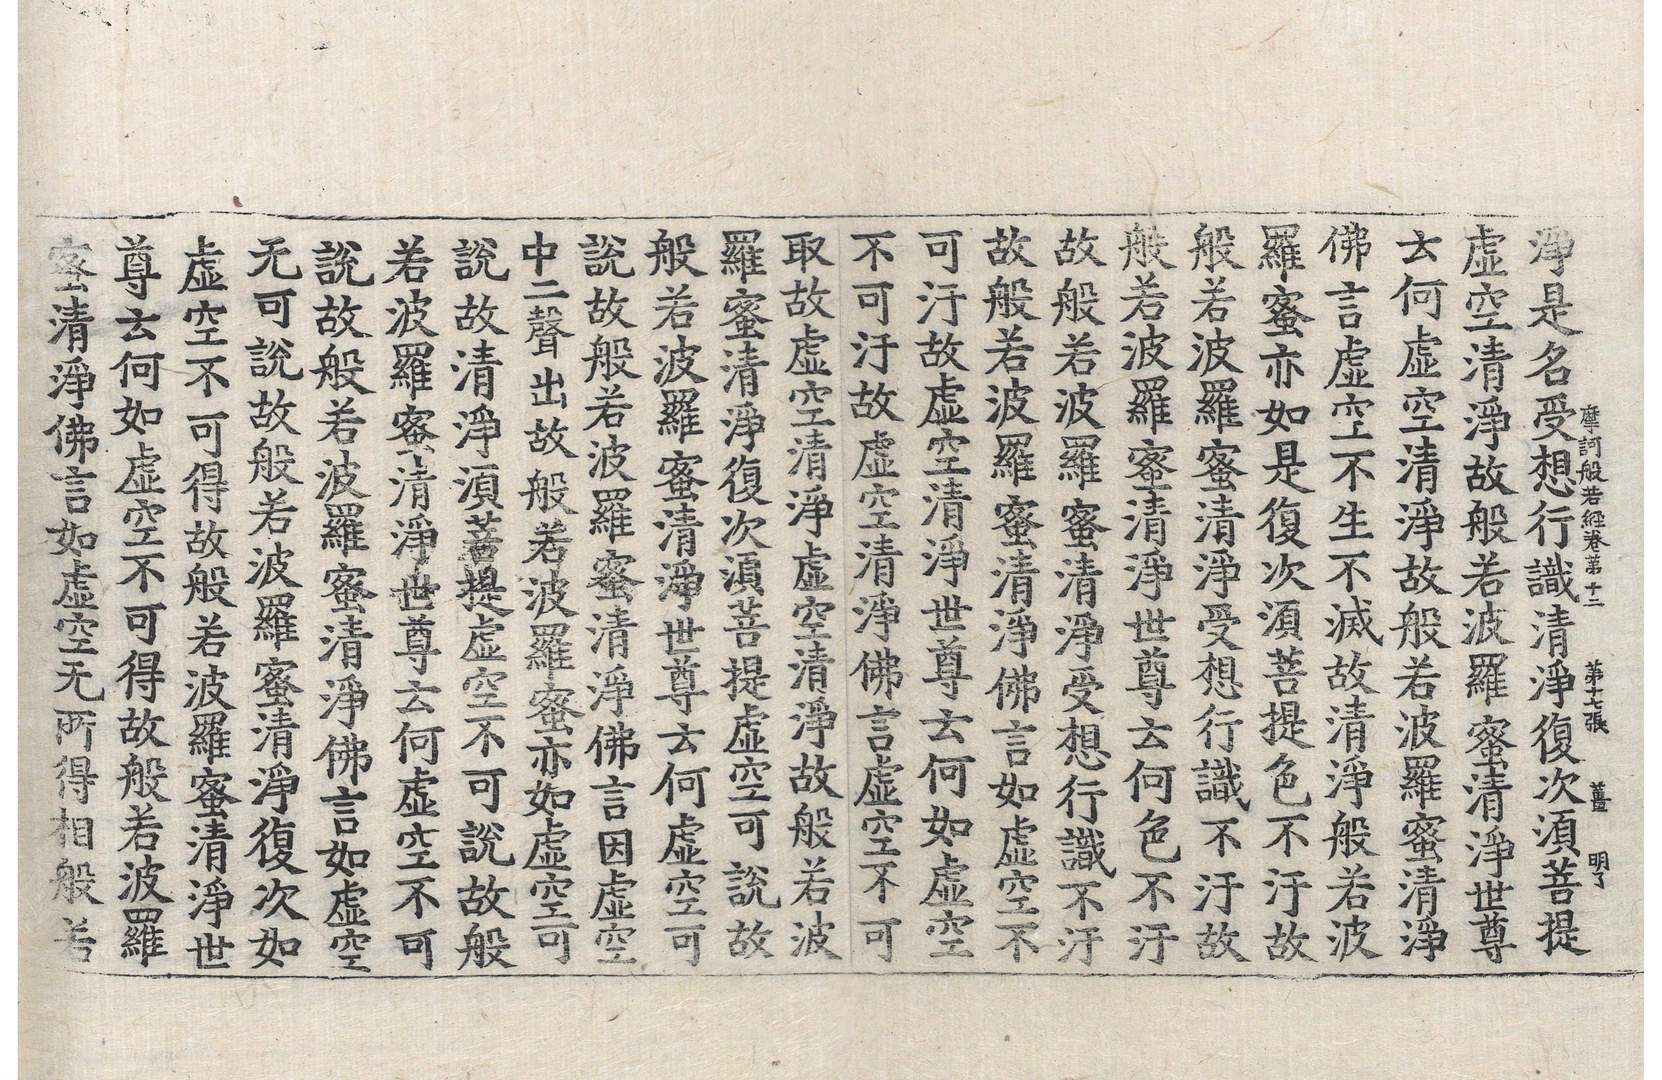 摩訶般若經卷第十二　第十七張　薑　明了
淨是名受想行識清淨復次湏菩提
虛空清淨故般若波羅蜜清淨世尊
云何虛空清淨故般若波羅蜜清淨
佛言虛空不生不滅故清淨般若波
羅蜜亦如是復次湏菩提色不汙故
般若波羅蜜清淨受想行識不汙故
般若波羅蜜清淨世尊云何色不汙
故般若波羅蜜清淨受想行識不汙
故般若波羅蜜清淨佛言如虛空不
可汙故虛空清淨世尊云何如虛空
不可汙故虛空清淨佛言虛空不可
取故虛空清淨虛空清淨故般若波
羅蜜清淨復次湏菩提虛空可說故
般若波羅蜜清淨世尊云何虛空可
說故般若波羅蜜清淨佛言因虛空
中二聲出故般若波羅蜜亦如虛空可
說故清淨湏菩提虛空不可說故般
若波羅蜜清淨世尊云何虛空不可
說故般若波羅蜜清淨佛言如虛空
无可說故般若波羅蜜清淨復次如
虛空不可得故般若波羅蜜清淨世
尊云何如虛空不可得故般若波羅
蜜清淨佛言如虛空无所得相般若